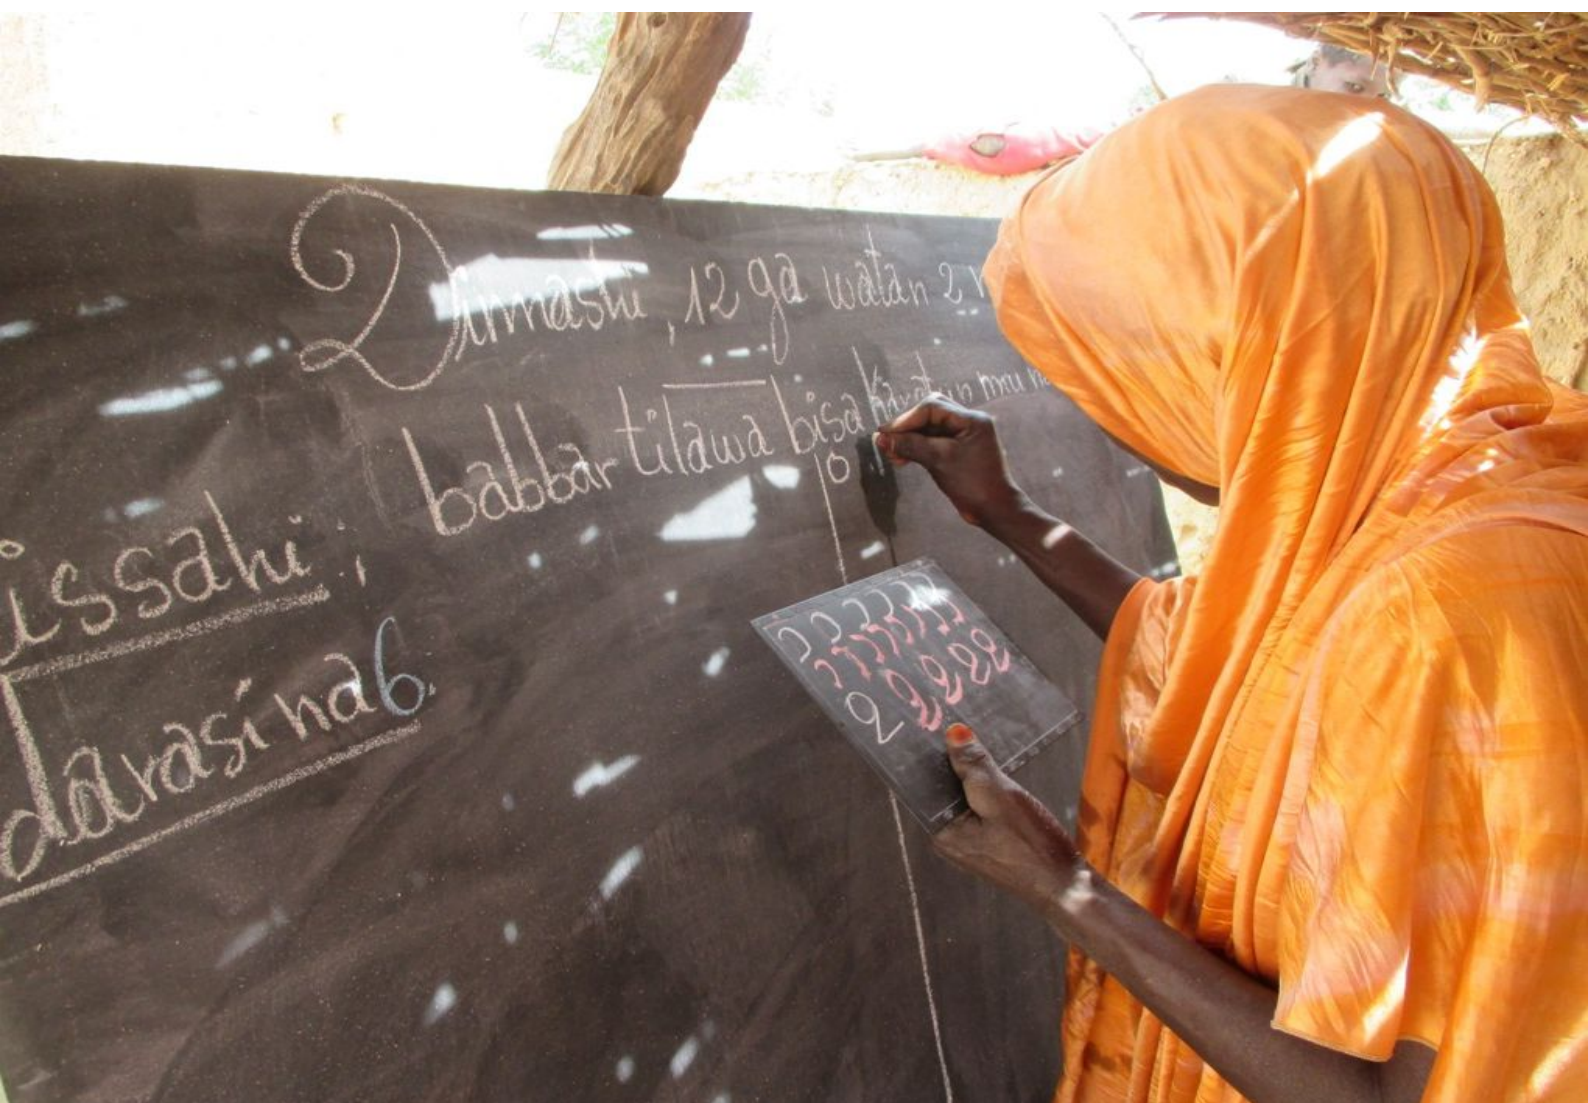 Dimashi, 12 ga watan 2
issahi : babbar tilawa bisa karatun mu na
darasi na 6.
2 2 2 2 2